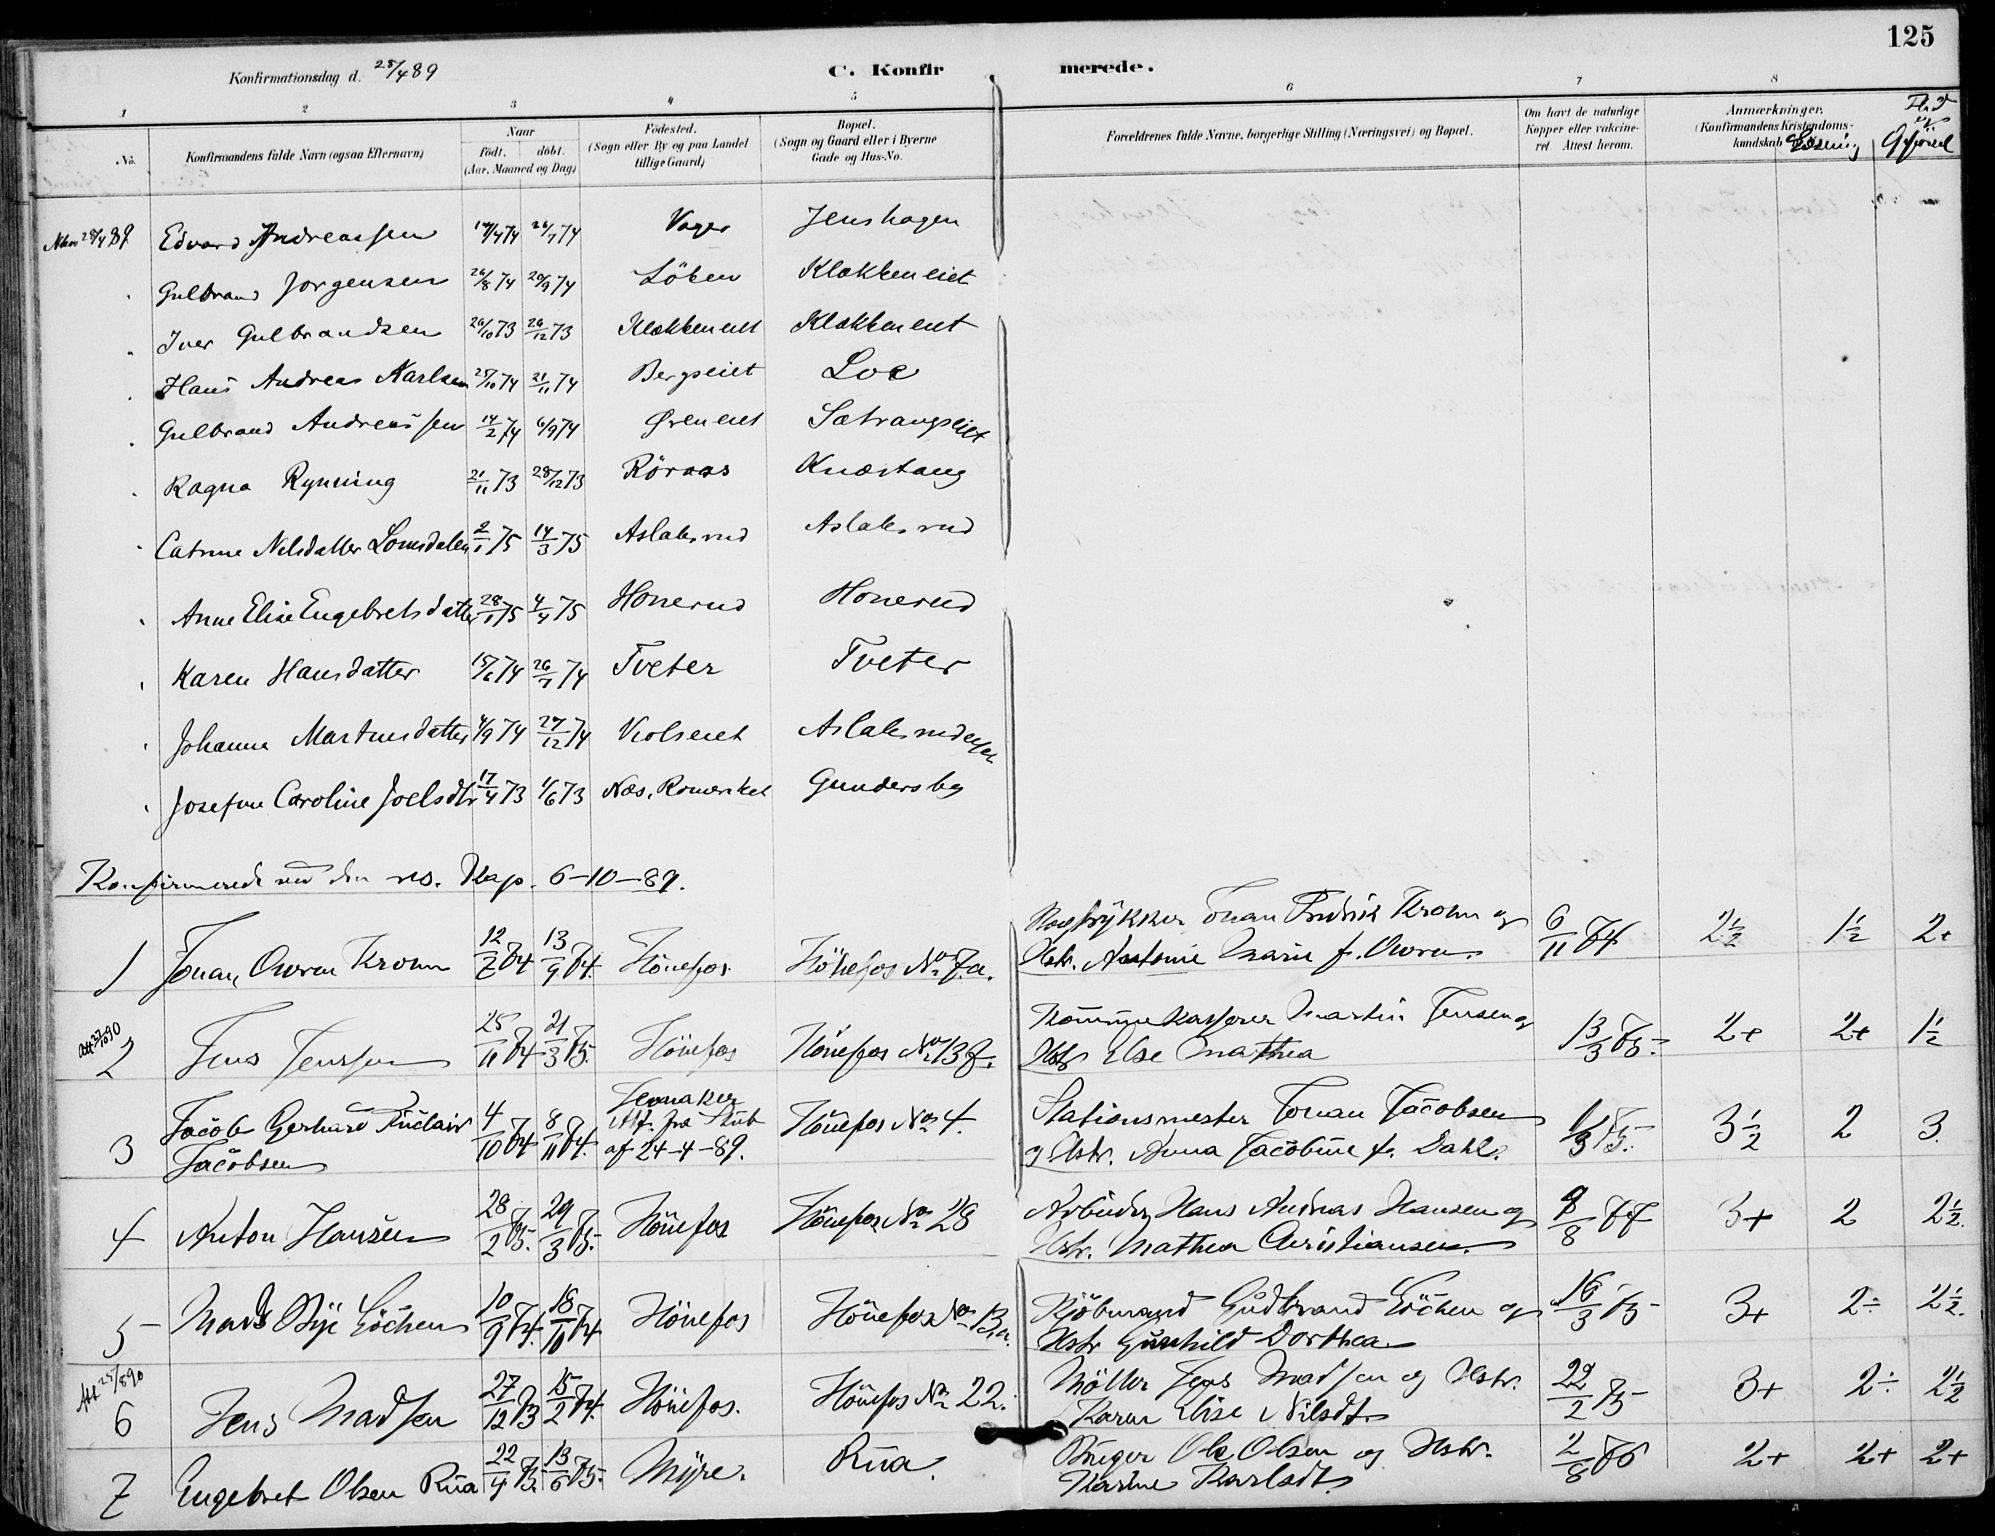 125
Konfirmationsdag d. 28/4 89
C. Konfirmerede.
1 2 3 4 5 6 7 8
No.
Konfirmandens fulde Navn (ogsaa Efternavn)
Naar
født. døbt.
(Aar, Maaned og Dag)
Fødested.
(Sogn eller By og paa Landet
tillige Gaard)
Bopæl.
(Sogn og Gaard eller i Byerne
Gade og Hus-No.
Forældrenes fulde Navne, borgerlige Stilling (Næringsvei) og Bopæl.
Om havt de naturlige
Kopper eller vakcine-
ret Attest herom.
Anmærkninger.
(Konfirmandens Kristendoms-
kundskab
Læsning
Flid
og
Opførsel
28/4 89 Edvard Andreassen 14/4 74 26/7 74 Vager Jenshagen
Gulbrand Jørgensen 26/8 74 20/9 74 Løken Klækkeneiet
Iver Gulbrandsen 26/10 73 26/12 73 Klækkeneiet Klækkeneiet
Hans Andreas Karlsen 25/10 74 21/11 74 Bergseiet Loe
Gulbrand Andreassen 14/2 74 6/9 74 Øreneiet Sætrangseiet
Ragna Rynning 21/11 73 28/12 73 Röraas Knæstang
Catrine Nilsdatter Lomsdalen 2/1 75 14/3 75 Aslaksrud Aslaksrud
Anne Elise Engebretsdatter 28/1 75 4/4 75 Honerud Honerud
Karen Hansdatter 15/6 74 26/7 74 Tveter Tveter
Johanne Martinsdatter 4/9 74 27/12 74 Violseiet Aslaksrudeiet
Josefine Caroline Joelsdtr 17/4 73 1/6 73 Næs, Romeriket Gundersby
Konfirmerede ved den res. Kap. 6-10-89.
Johan Fredrik Krohn og
1 Johan Owren Krohn 12/7 74 13/9 74. Hönefos Hönefos No 7a. Hstr. Antonie Marie f. Owren. 6/11 74 2½ 1½ 2+
Att 3/10 90
2 Jens Jenssen 25/11 74 21/3 75. Hönefos Hönefos No 137. Kommunekasserer Martin Jensen og
Hstr Else Mathea 13/3 75. 2+ 2+ 1½
3 Jacob Gerhard Sinclair
Jacobsen 4/10 74 8/11 74.
Att. fra
af 24-4-89. Hönefos No 4. Stationsmester Johan Jacobsen
og Hstr. Anna Jacobine f. Dahl. 1/3 75. 3½ 2 3.
4 Anton Hansen 28/2 75. 29/3 75. Hönefos Hönefos No 28 Arbeider Hans Andreas Hansen og
Hstr. Mathea Christiansen. 9/8 77 3+ 2 2½.
5 Mads Bye Göchen 10/9 74. 18/10 74 Hönefos Hönefos No 13a. Kjöbmand Gudbrand Göchen og
Hstr Gunhild Dorthea 16/3 75 3+ 2÷ 2½.
Att 25/8 90
6 Jens Madsen 27/12 73 15/2 74. Hönefos. Hönefos No 22. Möller Jens Madsen og Hstr.
Karen Elise Nilsdt. 22/2 75 3+ 2÷ 2½
7 Engebret Olsen Rua 22/4 75. 13/6 75. Myre. Rua. Bruger Ole Olsen og Hstr.
Karine Karlsdt. 2/8 76 2+ 2+ 2+